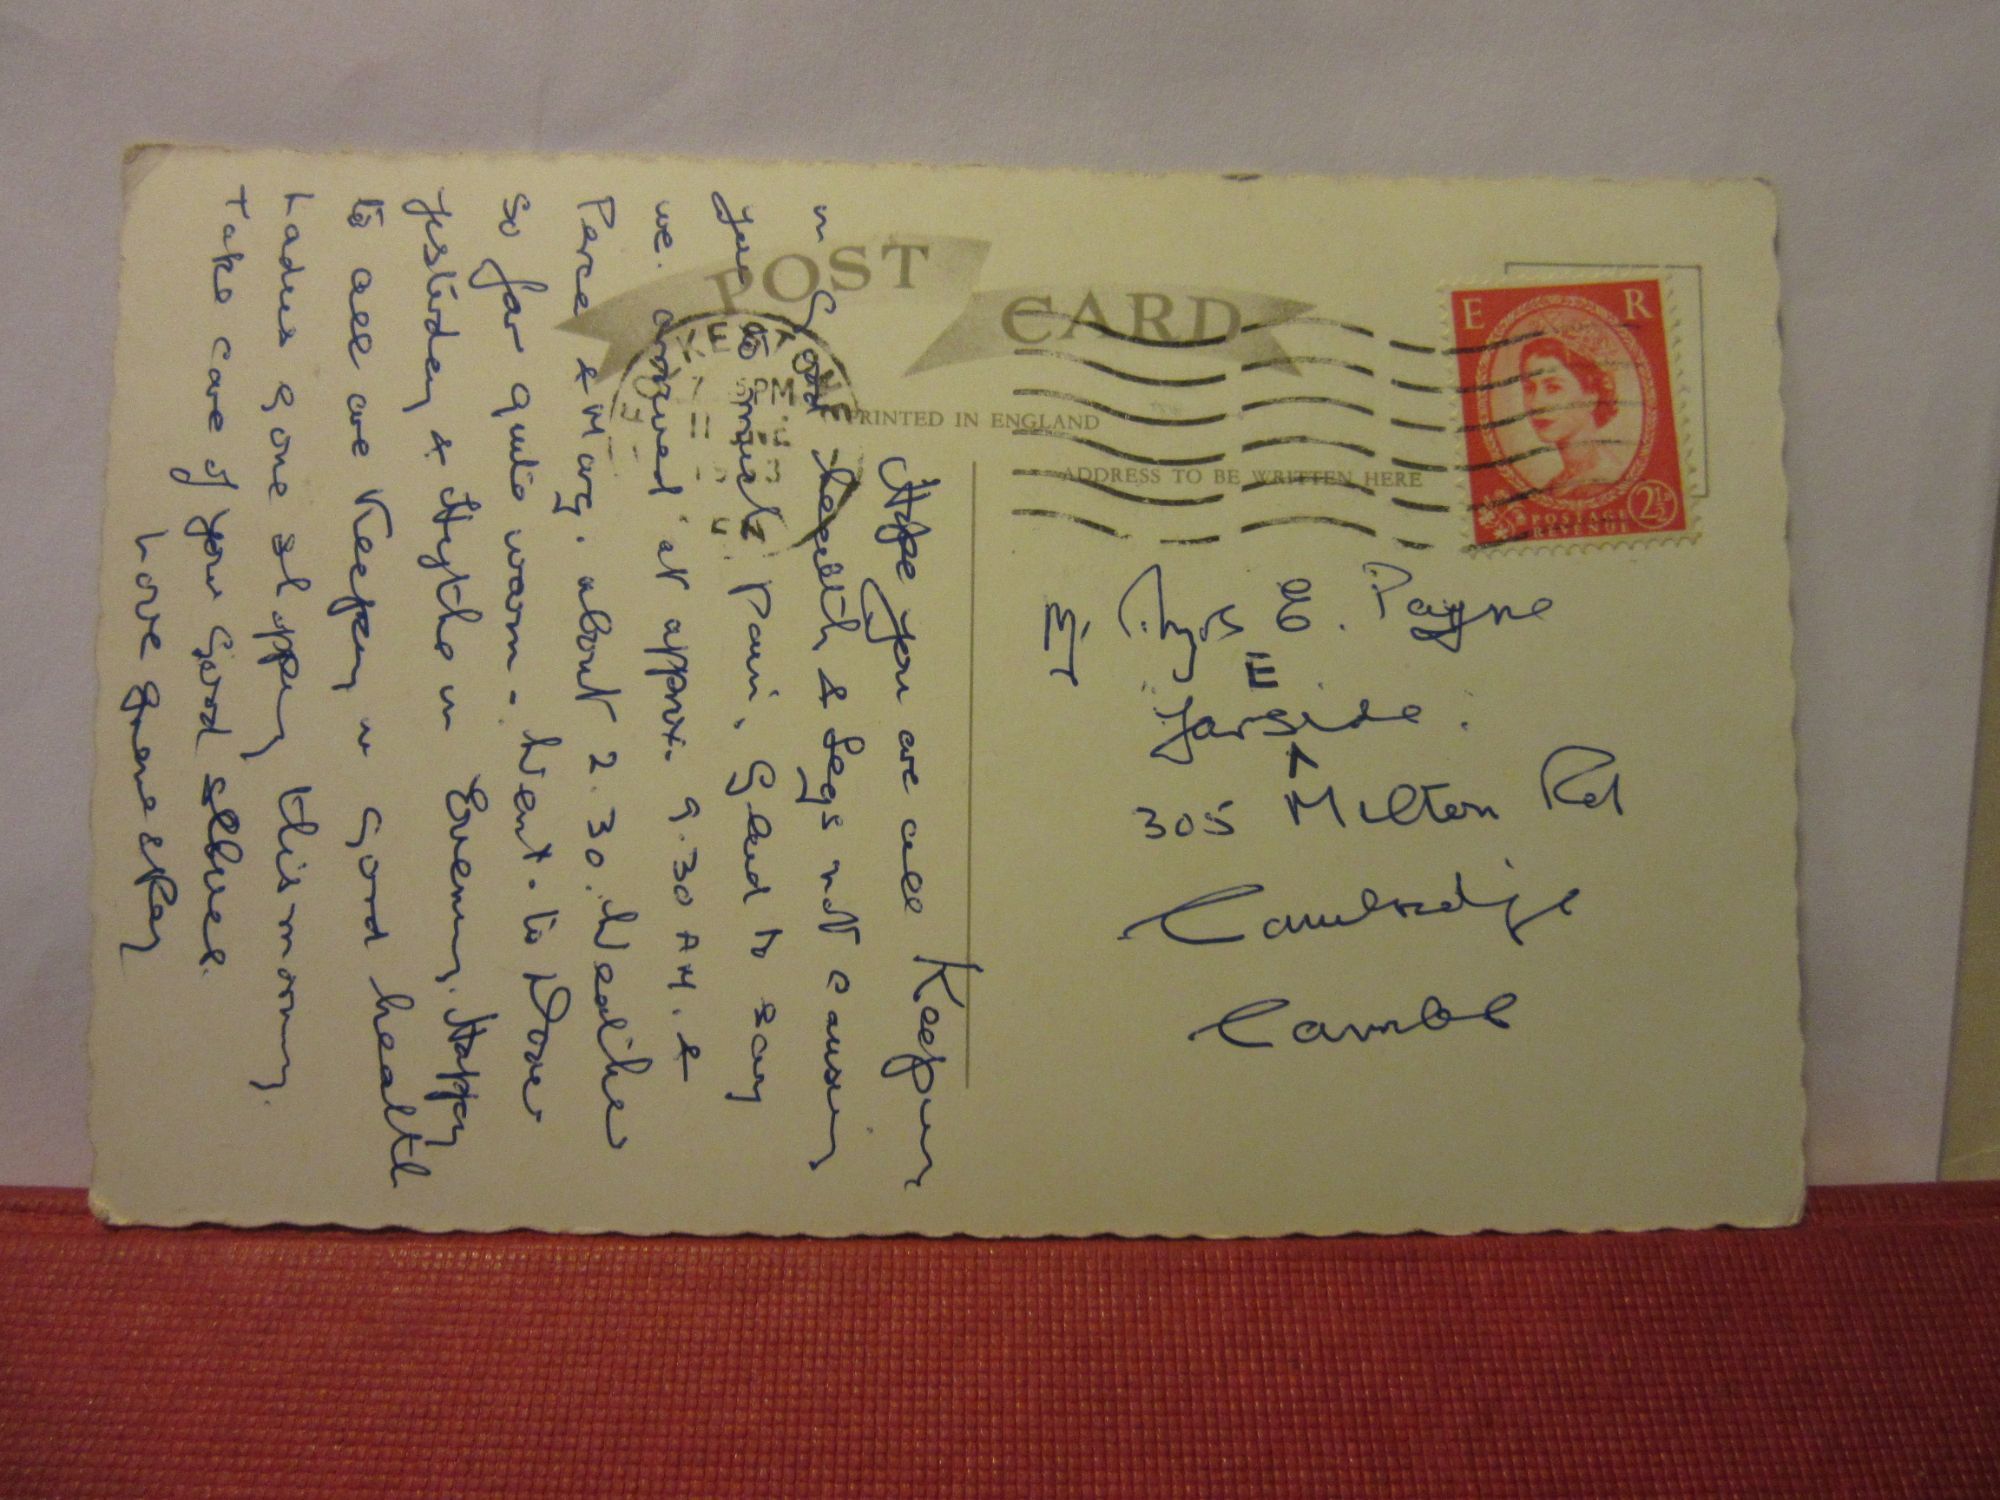 POST CARD
PRINTED IN ENGLAND
ADDRESS TO BE WRITTEN HERE
FOLKESTONE
E R
POSTAGE
REVENUE
2½D
Payne
305 Milton Rd
Cambridge
Cambs
Hope you are all Keeping
in Good health & Legs not causing
you to much Pain. Glad to say
we arrived at approx. 9.30 AM. &
Perce & Mary. about 2.30. Weather
so far quite warm. Went. to Dover
yesterday & Hythe in Evening. Happy
to all are Keeping in Good health
Ladies gone shopping this morning.
Take care of your Good selves.
Love & Ray